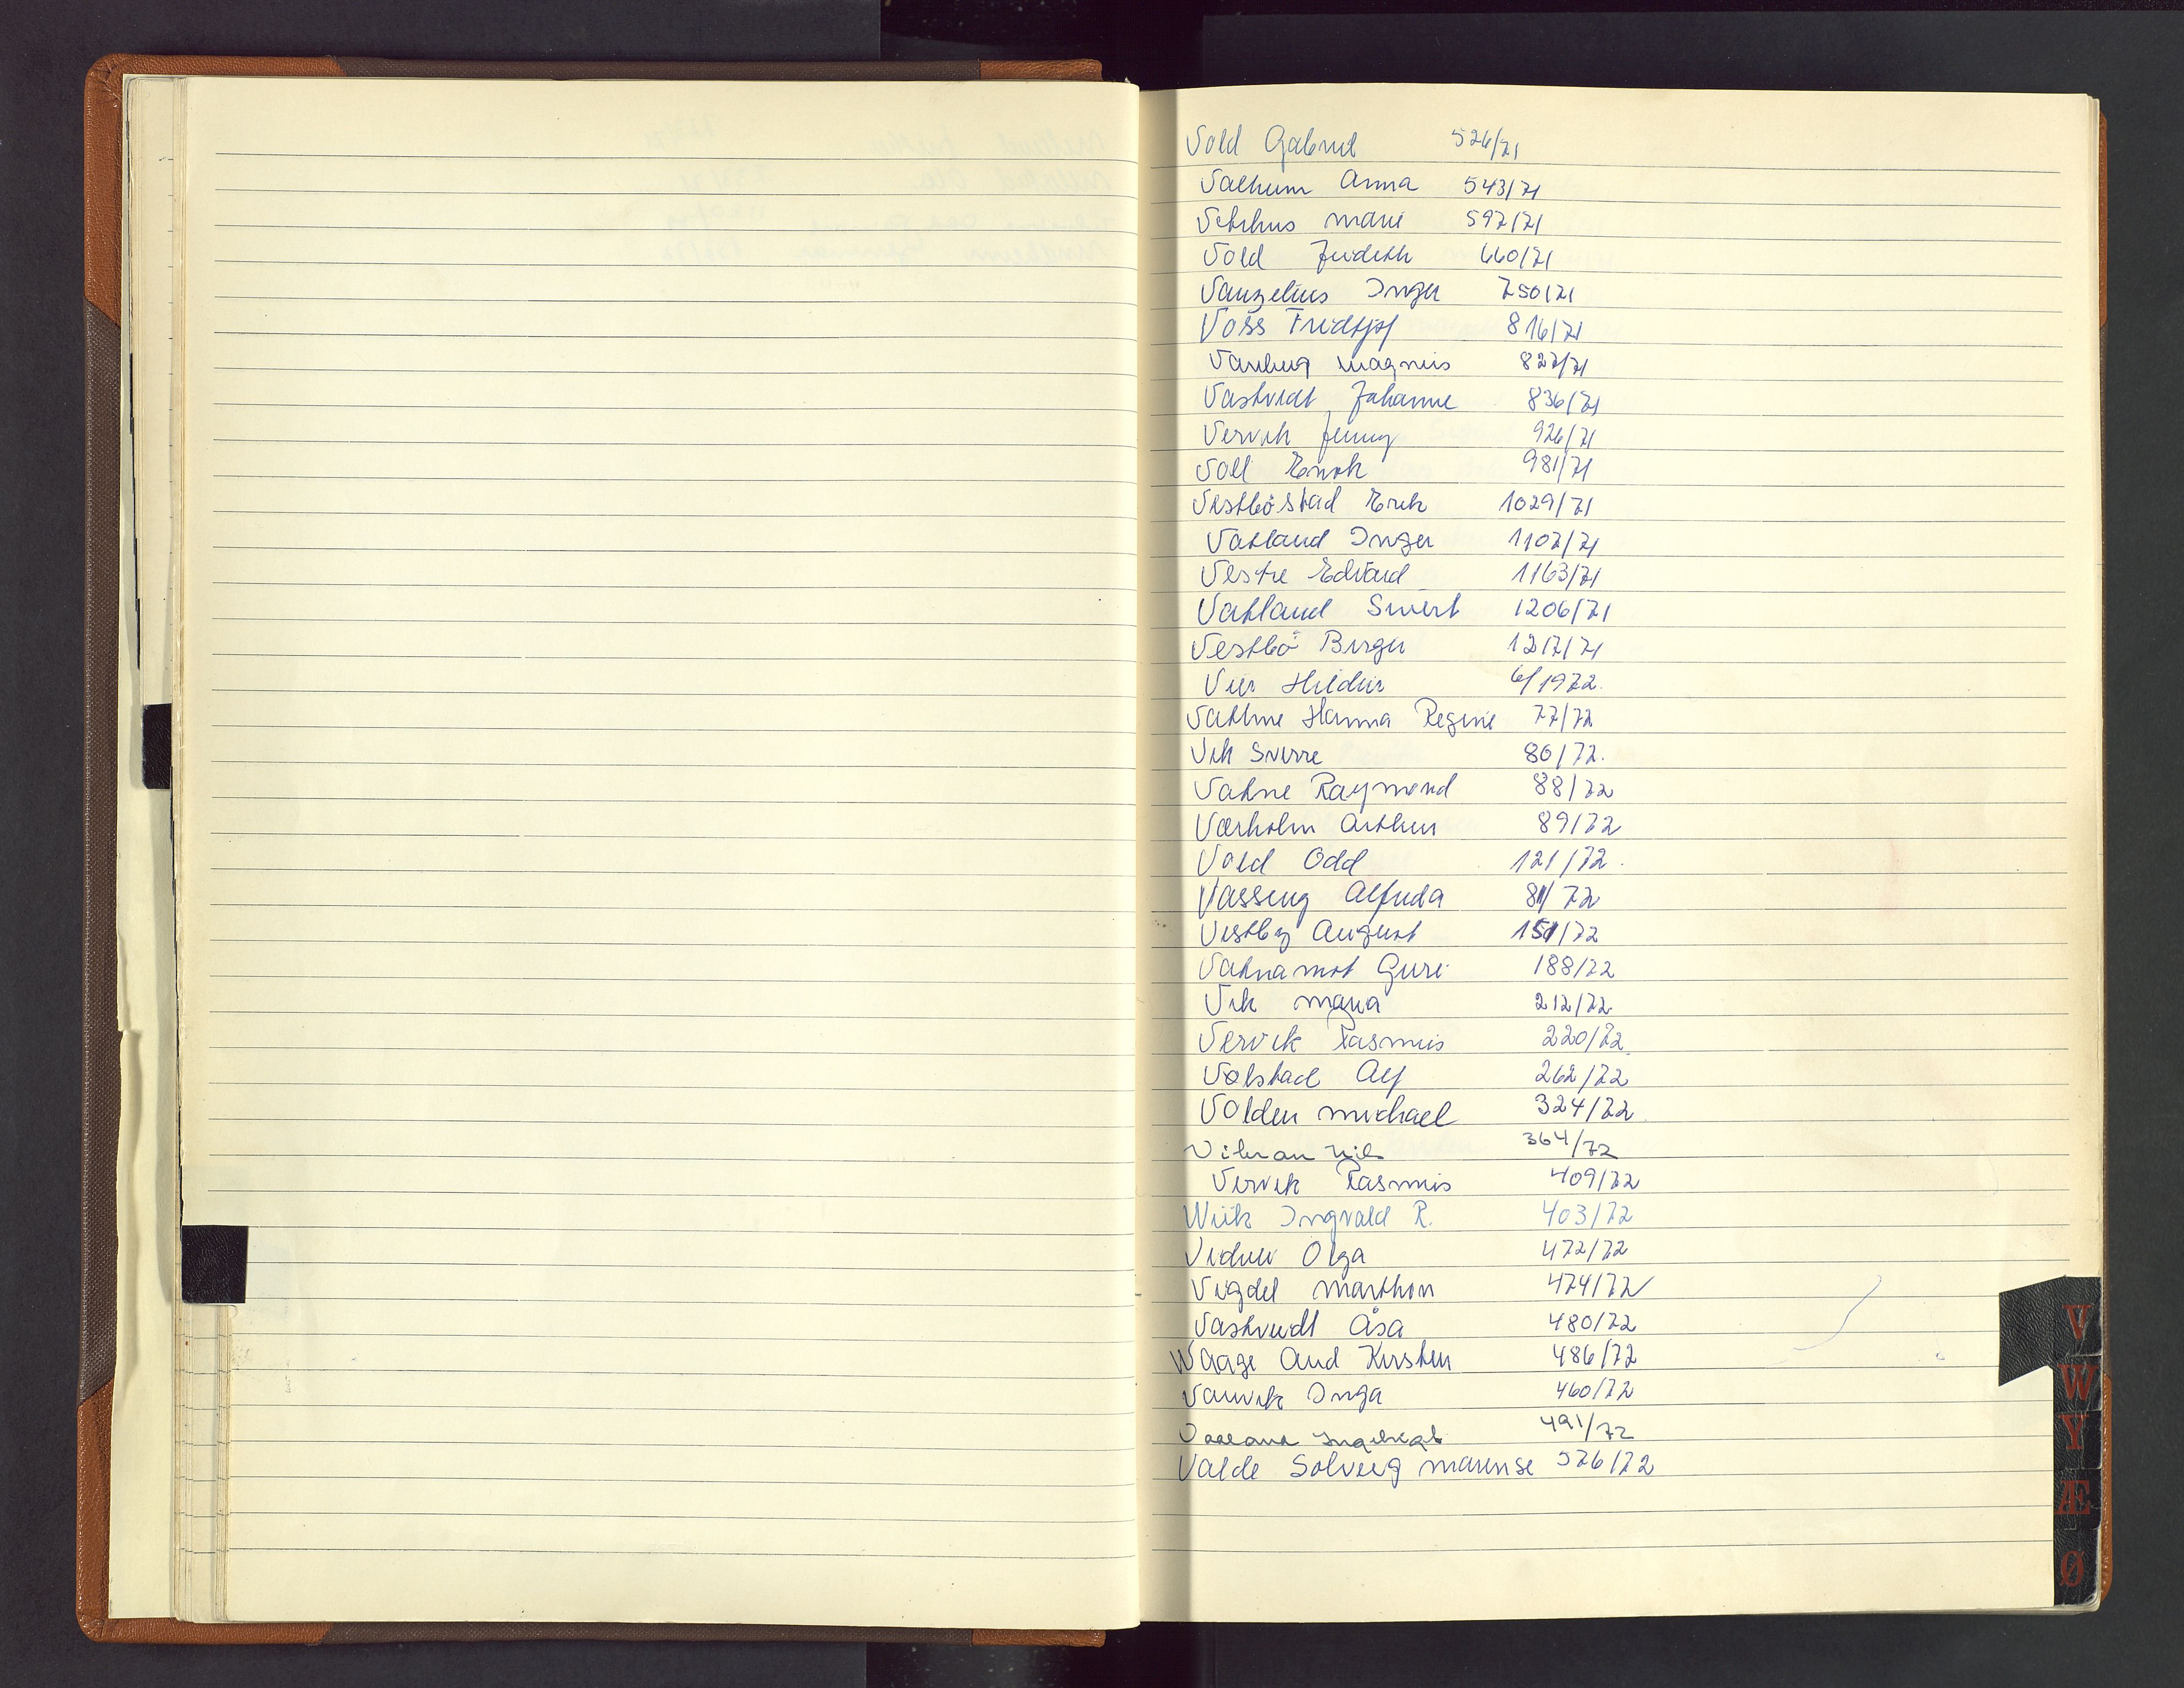 Vold Gabriel 526/71
Valheim Anna 543/71
Vetrhus Marie 597/71
Vold Judith 660/71
Vauzelius Inger 750/71
Voss Fridtjof 816/71
Varberg Magnus 827/71
Vastveit Johanne 836/71
Vervik Jenny 926/71
Voll Enok 981/71
Vestbøstad Erik 1029/71
Vatland Inger 1107/71
Vestre Edvard 1163/71
Vatland Sivert 1206/71
Vestbö Birger 1217/71
Veir Hildur 6/1972.
Vathne Hanna Regine 77/72
Vik Sverre 80/72.
Vatne Raymond 88/72
Værholm Arthur 89/72
Vold Odd 121/72.
Vasseng Alfrida 81/72
Vestby August 151/72
Vatnamot Guri 188/72
Vik Maria 212/72
Vervik Rasmus 220/72
Volstad Alf 262/72
Volden Michael 324/72
364/72
Vervik Rasmus 409/72
Wiik Ingvald R. 403/72
Vidnes Olga 472/72
Vigdel Marthon 474/72
Vastveidt Åsa 480/72
Waage Aud Kirsten 486/72
Vauvik Inga 460/72
Vaaland Ingebregt 491/72
Valde Solveig Marense 526/72
V
W
Y
Æ
Ø